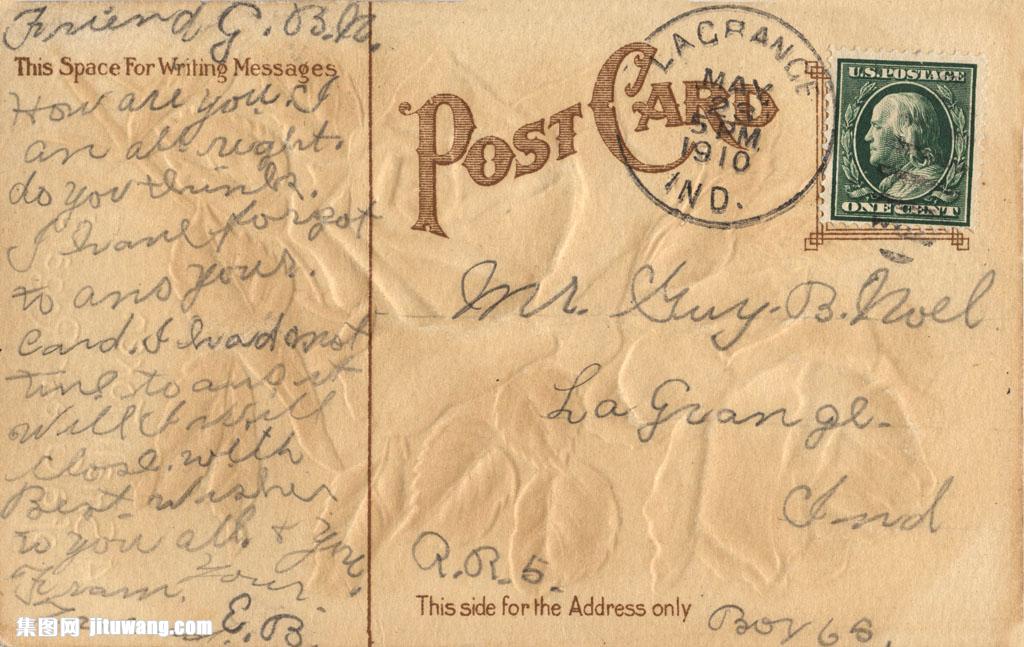 Friend G. B. N.
This Space For Writing Messages
How are you. I
am all right.
do you think.
I have forgot
to ans your.
Card. I had not
time to ans it
Will I will
Close. with
Best. wishes
to you all. & you.
From. Your
E. B.
POST CARD
LAGRANGE
MAY
23
5 PM
1910
IND.
U.S. POSTAGE
ONE CENT
Mr. Guy. B. Noel
La Grange.
Ind
R. R. 5.
This side for the Address only
Box 68.
集图网 jituwang.com